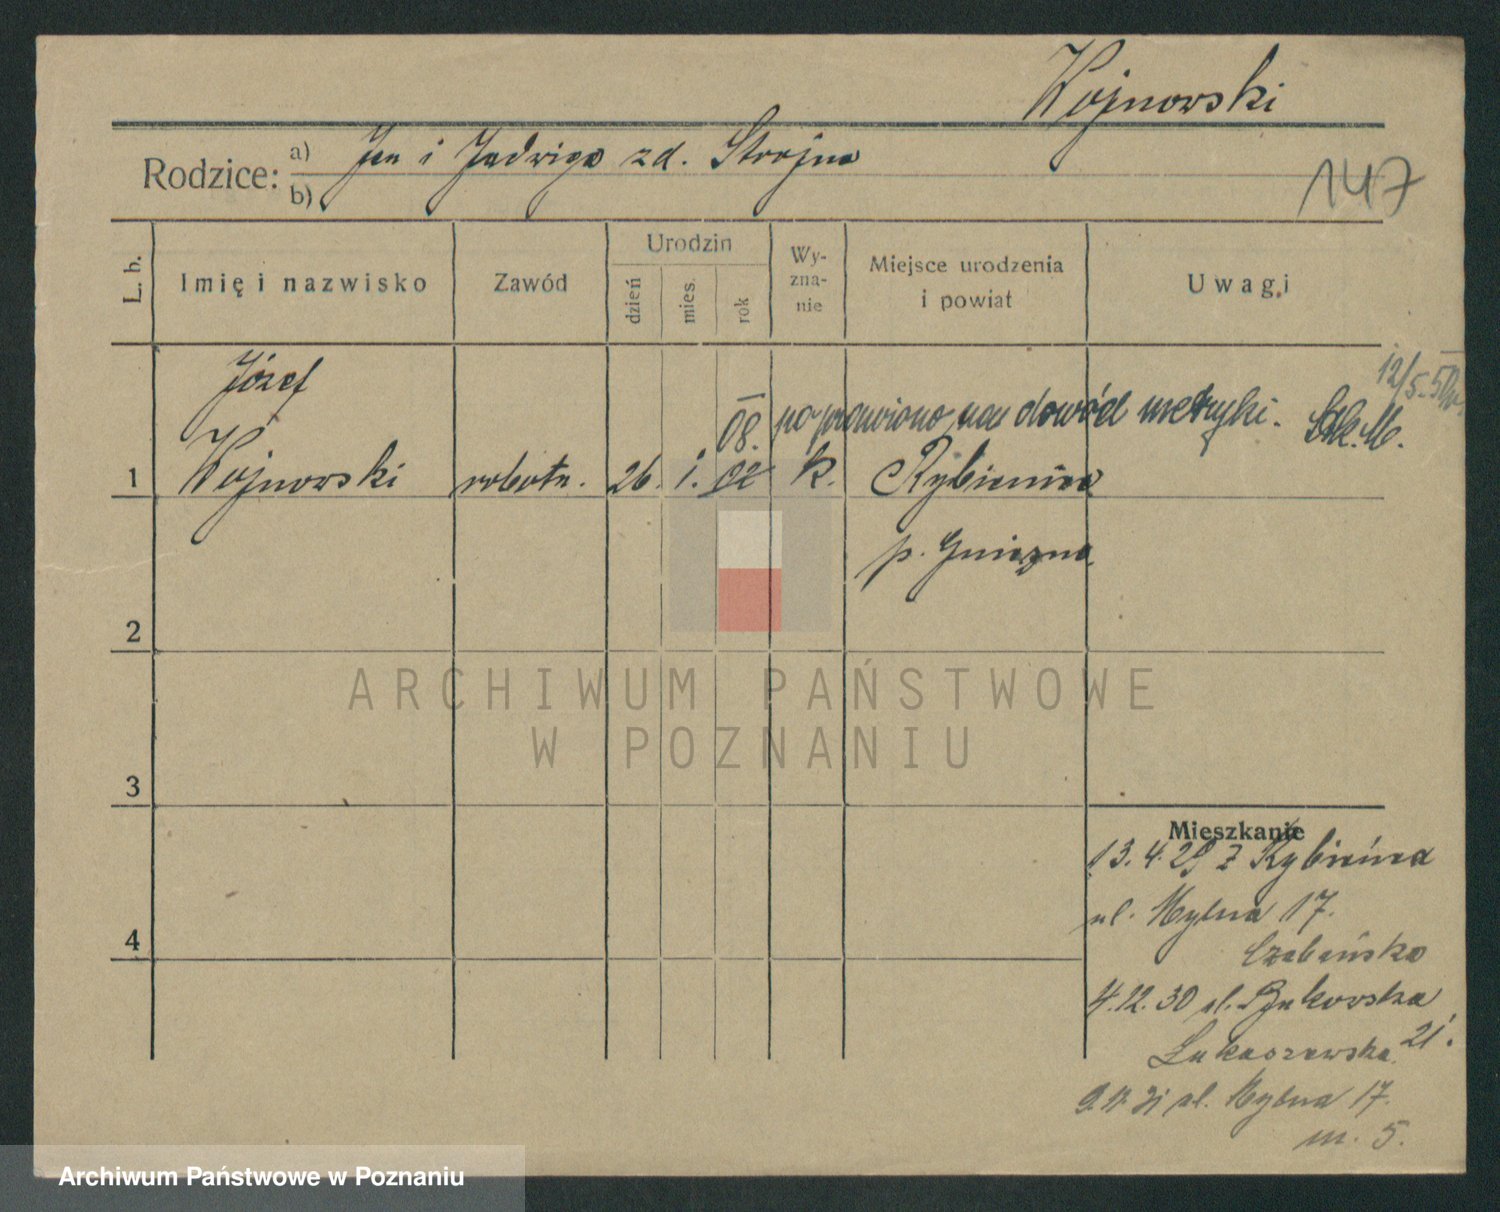 Wojnowski
Rodzice: a) Jan i Jadwiga zd. Strojna
b)
147
L. b.
Imię i nazwisko
Zawód
Urodzin
dzień
mies.
rok
Wy-
zna-
nie
Miejsce urodzenia
i powiat
Uwagi
12/5.50
Józef
08. poprawiono na dowód metryki.
1 Wojnowski robotn. 26. i. 02 k. Rybieniec
p. Gniezno
2
ARCHIWUM PAŃSTWOWE
W POZNANIU
3
Mieszkanie
13.4.29 z Rybieńca
ul. Mylna 17.
4
4.12.30 ul. Bukowska
21.
Łukaszewska
9.11.31 ul. Mylna 17.
m. 5.
Archiwum Państwowe w Poznaniu